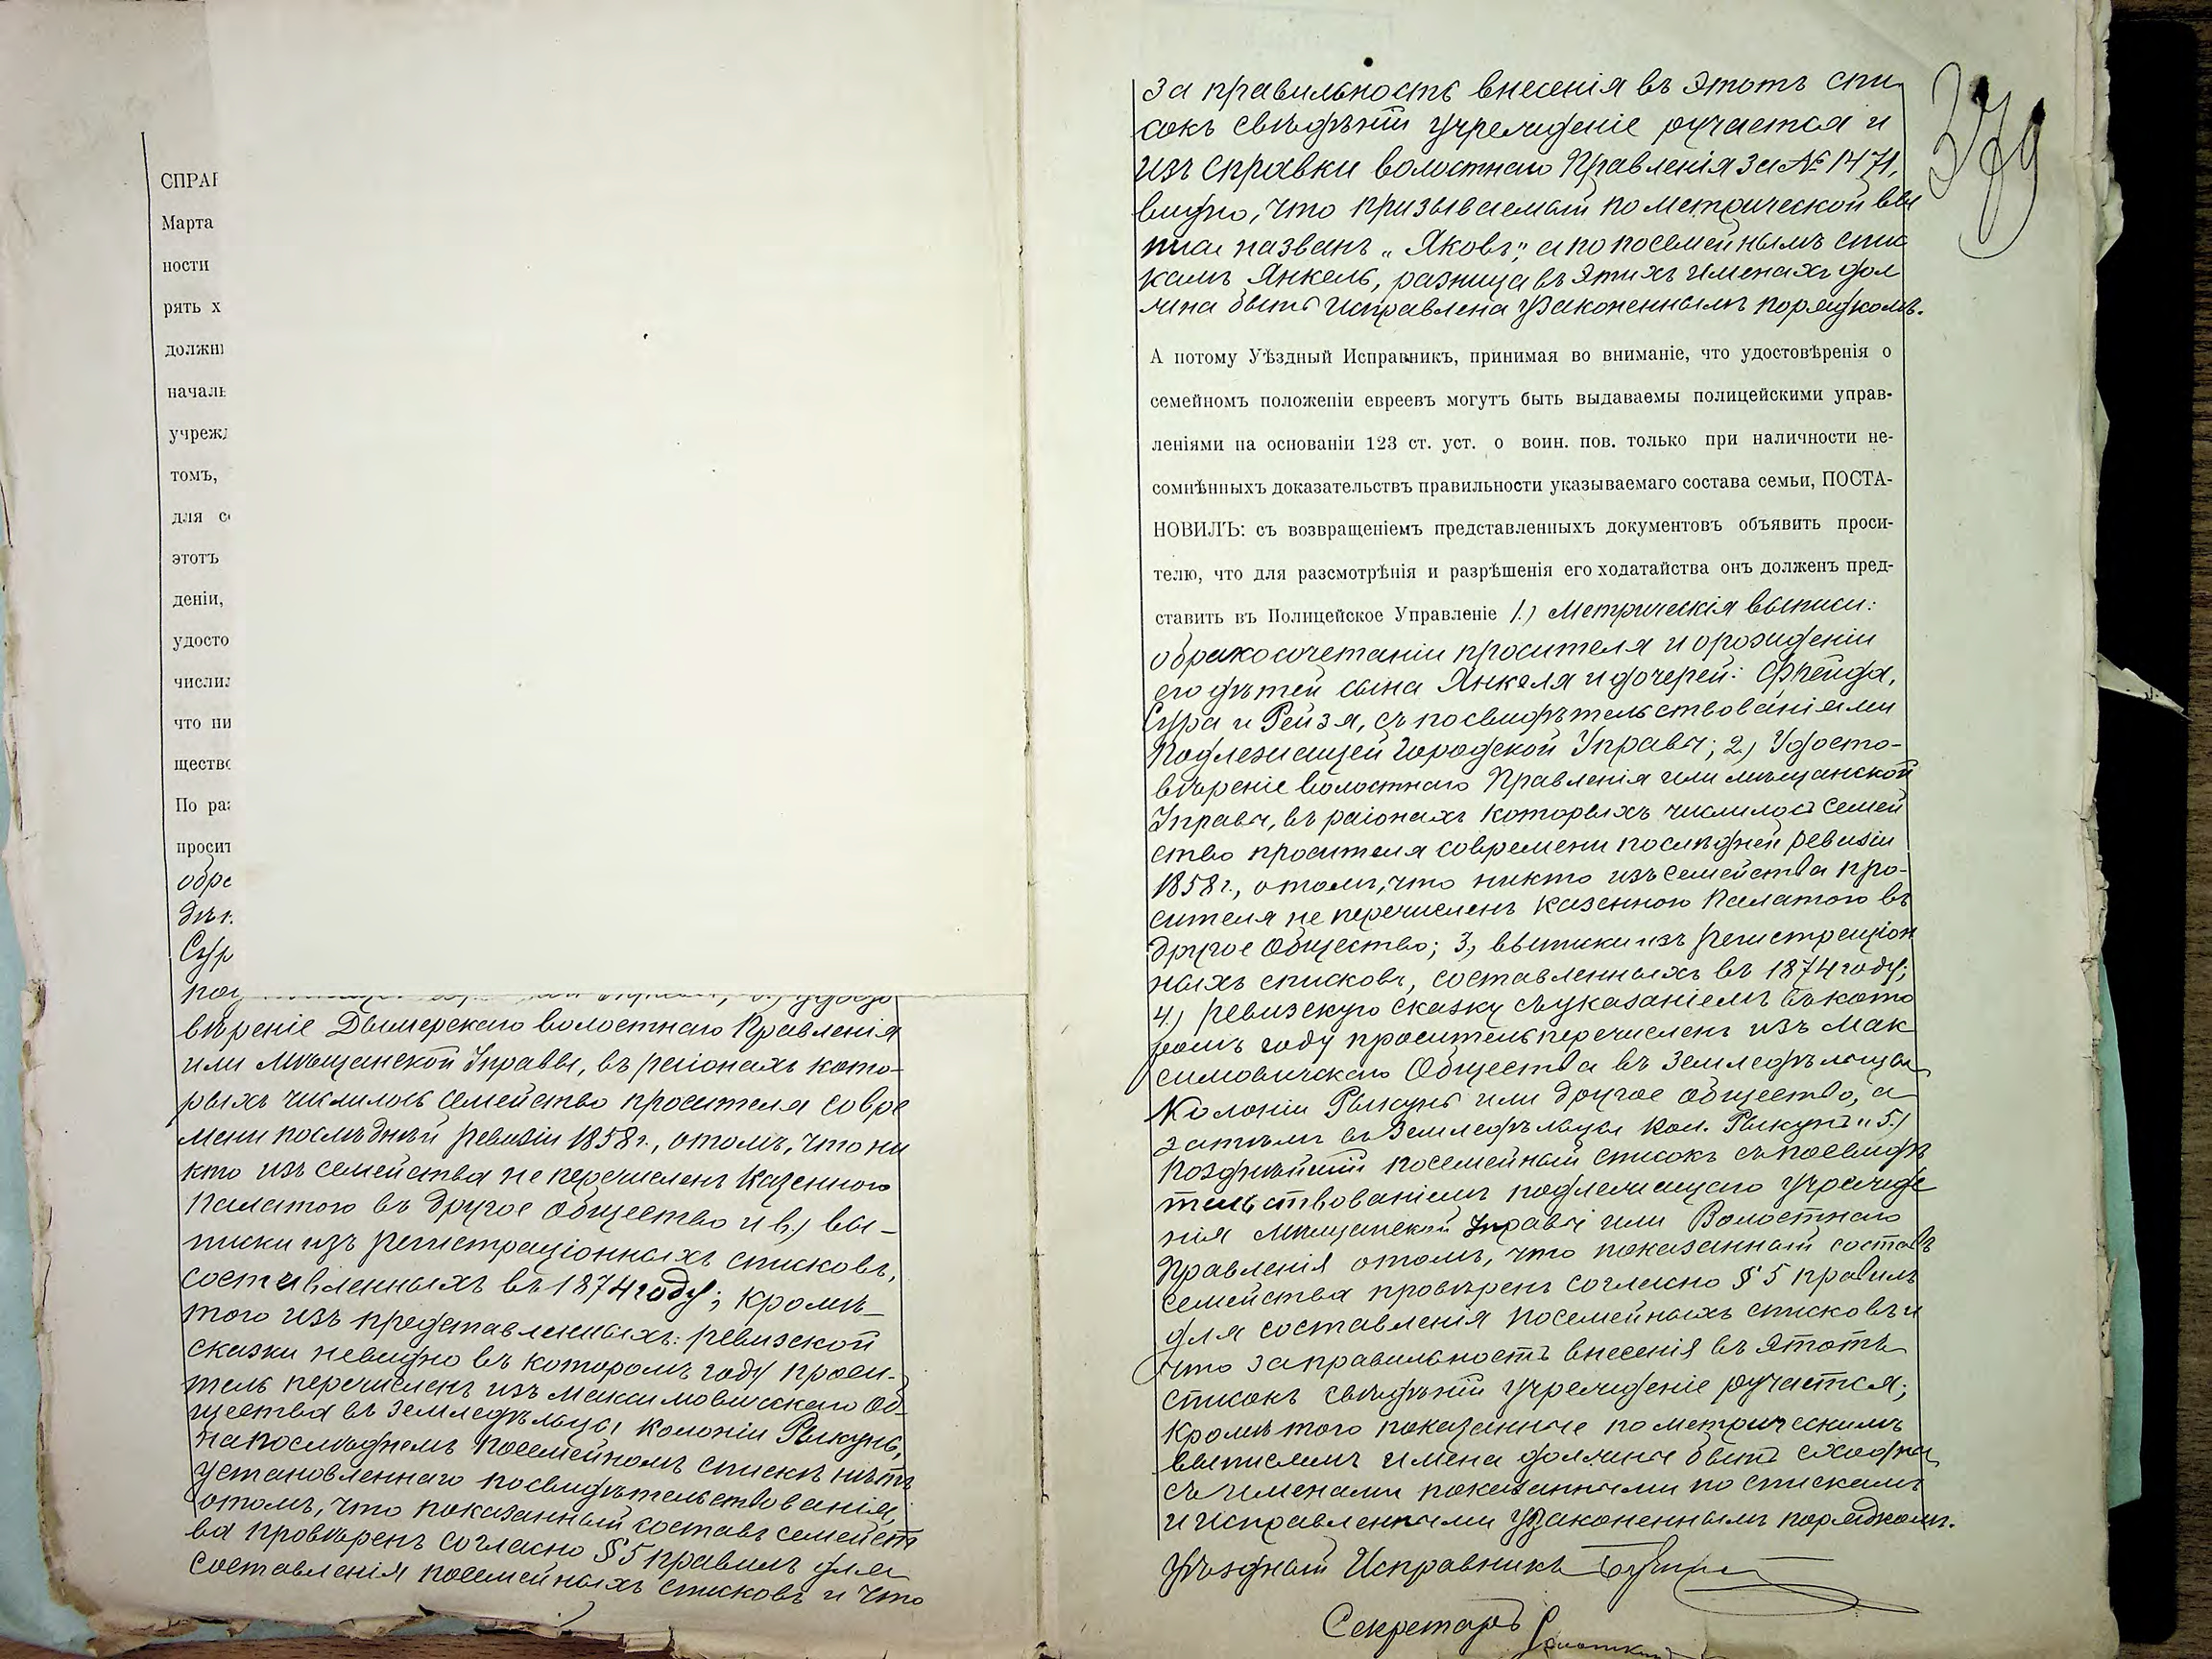 СПРАВ
Марта
ности
рять х
должн
началь
учреж
томъ,
для с
этотъ
деніи,
удосто
числил
что ни
ществ
По ра
просит
обра
дѣт
Сур
под
вѣреніе Дымерскаго волостнаго Правленія
или Мѣщанской Управы, въ раіонахъ кото-
рыхъ числилось семейство просителя совре
мени послѣдней ревизіи 1858 г., отомъ, что ни
кто изъ семейства не перечисленъ Казенною
Палатою въ другое Общество и в) вы-
писки изъ регистраціонныхъ списковъ,
составленныхъ въ 1874 году; кромѣ
того изъ представленныхъ: ревизской
сказки невидно въ которомъ году проси-
тель перечисленъ изъ Максимовичскаго Об-
щества въ земледѣльцы колоніи Рыкунь,
на послѣднемъ посемейномъ спискѣ нѣтъ
установленнаго посвидѣтельствованія,
отомъ, что показанный составъ семейст
ва провѣренъ согласно § 5 правилъ для
составленія посемейныхъ списковъ и что
379
за правильность внесенія въ этотъ спи
сокъ свѣдѣній учрежденіе ручается и
изъ справки волостнаго Правленія за № 1471,
видно, что призываемый по метрической вы
писи названъ „Яковъ", а по посемейнымъ спис
камъ Янкель, разница въ этихъ именахъ дол
жна быть исправлена узаконеннымъ порядкомъ.
А потому Уѣздный Исправникъ, принимая во вниманіе, что удостовѣренія о
семейномъ положеніи евреевъ могутъ быть выдаваемы полицейскими управ-
леніями на основаніи 123 ст. уст. о воин. пов. только при наличности не-
сомнѣнныхъ доказательствъ правильности указываемаго состава семьи, ПОСТА-
НОВИЛЪ: съ возвращеніемъ представленныхъ документовъ объявить проси-
телю, что для разсмотрѣнія и разрѣшенія его ходатайства онъ долженъ пред-
ставить въ Полицейское Управленіе 1.) Метрическія выписи:
обракосочетаніи просителя и орожденіи
его дѣтей сына Янкеля и дочерей: Фрейда,
Сура и Рейзя, съ посвидѣтельствованіями
Подлежащей Городской Управы; 2.) Удосто-
вѣреніе волостнаго Правленія или мѣщанской
Управы, въ раіонахъ которыхъ числилось семей
ство просителя современи послѣдней ревизіи
1858 г., отомъ, что никто изъ семейства про-
сителя не перечисленъ казенною Палатою въ
другое Общество; 3.) выписки изъ регистраціон
ныхъ списковъ, составленныхъ въ 1874 году;
4.) ревизскую сказку съ указаніемъ въ кото
ромъ году проситель перечисленъ изъ Мак
симовичскаго Общества въ земледѣльцы
Колоніи Рыкунь или другое общество, а
затѣмъ въ Земледѣльцы кол. Рыкунь и 5.)
Позднѣйшій посемейный списокъ съ посвидѣ
тельствованіемъ подлежащаго учрежде
нія Мѣщанской Управы или Волостнаго
Правленія отомъ, что показанный составъ
семейства провѣренъ согласно § 5 правилъ
для составленія посемейныхъ списковъ и
что за правильность внесенія въ этотъ
списокъ свѣдѣній учрежденіе ручается;
кромѣ того показанные по метрическимъ
выписямъ имена должны быть сходны
съ именами показанными по спискамъ
и исправленными узаконеннымъ порядкомъ.
Уѣздный Исправникъ
Секретарь